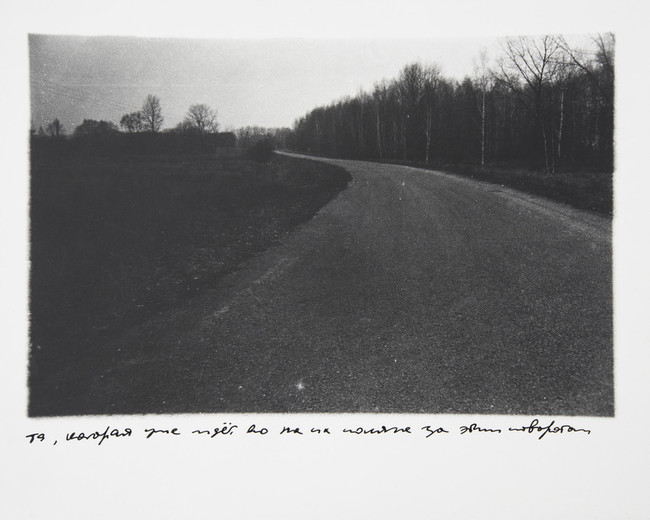 та, которая уже идёт, поляне за этим поворотом